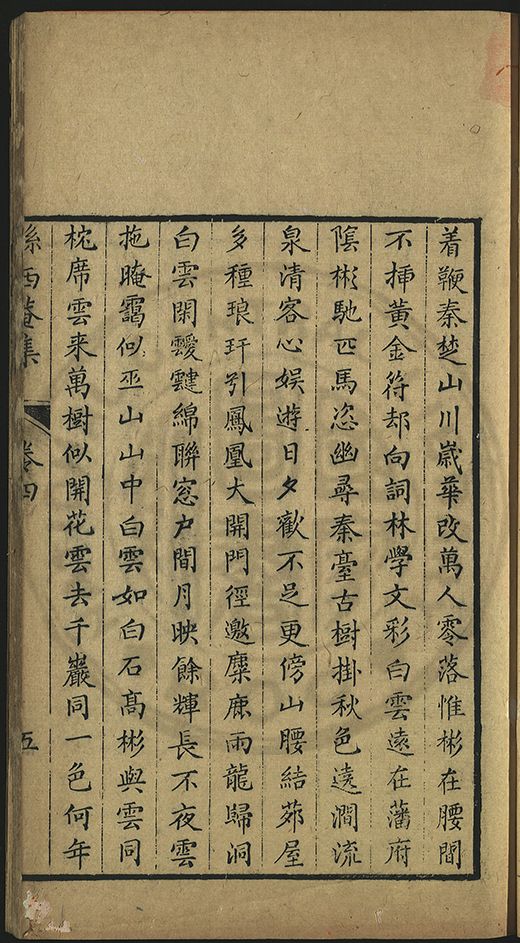 着鞭秦楚山川歲華改萬人零落惟彬在腰間
不揷黃金符却向詞林學文彩白雲遠在藩府
陰彬馳匹馬恣幽尋秦臺古樹掛秋色遠澗流
泉清客心娛遊日夕歡不足更傍山腰結茆屋
多種琅玕引鳳凰大開門徑邀麋鹿雨龍歸洞
白雲閑靉靆綿聯窓戶間月映餘輝長不夜雲
拖晻靄似巫山山中白雲如白石髙彬與雲同
枕席雲来萬樹似開花雲去千巖同一色何年
西菴集
卷四
五